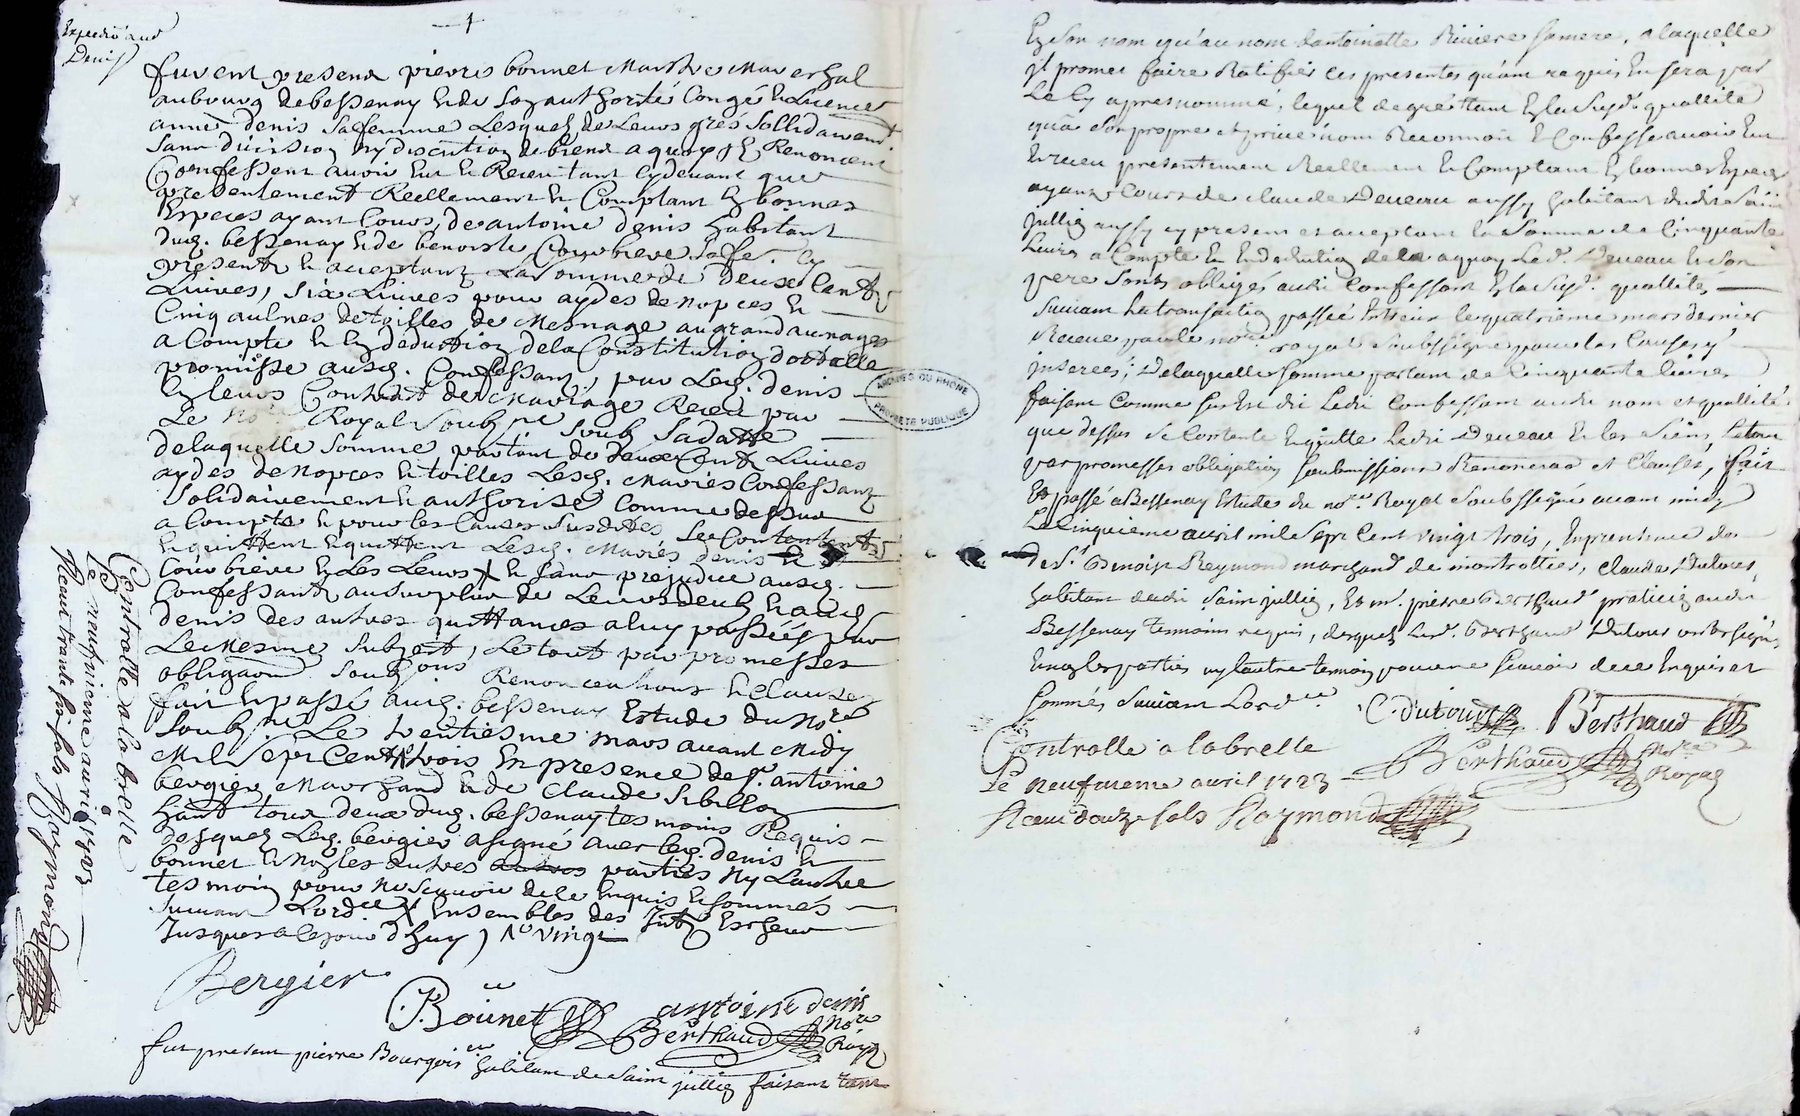 Expedié aud
Denis
furent presens pierre bonnet Maistre Mareschal
au bourg de bessenay Et de Son authorité Congé Et Licence
anne Denis Sa femme Lesquels de Leurs grés Sollidairement
Sans division ny discution de biens a quoy Ils Renoncent
Confessent avoir Eut Et Receu tant Cydevant que
presentement Reellement Et Comptant En bonnes
Especes ayant Cours, de antoine denis habitant
dud. bessenay Et de benoiste Courbiere Sa fe. Cy
presents Et acceptants La Somme de deux Cents
Livres, Six Livres pour aydes de nopces Et
Cinq aulnes de toilles de Mesnage au grand aunage
a Compte Et En deduction de la Constitution dottalle
promisse ausd. Confessants, par Led. denis
En leurs Contract de Mariage Receu par
Le No.re Royal Soubs.né Soub Sa datte
de laquelle Somme partant de deux Cents Livres
aydes de nopces Et toilles Lesd. Mariés Confessants
Solidairement Et authorisé Comme dessus
a Compte Et pour les Causes Susdites, Se Contentent
En quittent Lesd. Mariés denis Et
Courbiere Et Les Leurs X Et Sans prejudice ausd.
Confessants au Surplus de Leurs deub Et aud.
denis des autres quittances a luy passées par
Le Mesme Subject, Le tout par promesses
obligaon Soub.ons Renonceations Et Clauses
fait Et passé aud. bessenay Estude du No.re
Soubs.né Le trentiesme mars avant Midy
Mil Sept Cents X trois En presence de Sr. antoine
bergier Marchand Et de Claude Sibillon
hant tous deux dud. bessenay tesmoins Requis
desquels Led. bergier a signé avec led. denis Et
bonnet Et Non les autres parties Ny L'autre
tesmoin pour ne Scavoir de ce Enquis Et Sommés
Suivant L'ord.ce X Ensembles des
Jusques a Ce jour d'huy X Vingt
Bergier
P. Bonnet antoine denis
Berthaud No.re Royal
fut present pierre Bourgois habitant de Saint jullien faisant tant
Controlle a la brelle
Le neufvieme avril 1723
Receu trante six sols Reymond
En Son nom qu'au nom d'antoinette Riviere Sa mere, a laquelle
il promet faire Ratifier ces presentes quant requis En sera par
Le Cy apres nommé, lequel de gré tant En la Susd. quallité
qu'a Son propre et privé nom Reconnoit Et Confesse avoir Eut
Et receu presentement Reellement Et Comptant En bonnes Especes
ayant Cours de claude Deveau aussy habitant dudit Saint
jullien aussy cy present et acceptant la Somme de Cinquante
Livres a Compte Et En deduction de ce a quoy Led. Deveau Et Son
pere Sont obligés audit Confessant En la Susd. quallité
Suivant La transaction passée Entr'eux le quatrieme mars dernier
Receue par le no.re royal Soubssigné pour les Causes y
inserées; De laquelle Somme partant de Cinquante livres
faisant Comme Sus Est dit Ledit Confessant audit nom et quallité
que dessus Se Contente En quitte Ledit Deveau Et les Siens, Le tout
par promesses obligation Soubmissions Renonceaons et Clauses, fait
Et passé a Bessenay Estude du no.re Royal Soubssigné avant midy
Le Cinquieme avril mil Sept Cent vingt trois, En presence de
de Sr. Benoist Reymond marchand de montrottier, Claude Dutour,
habitant dudit Saint jullien, Et m.e pierre Berthaud praticien audit
Bessenay temoins requis, desquels Lesd. Berthaud Dutour ont Signé
Et non les parties ny l'autre temoin pour ne Scavoir de ce Enquis et
Sommés Suivant L'ord.ce C. dutour Berthaud
Controlle a la brelle Berthaud No.re Royal
Le neufvieme avril 1723
Receu douze sols Reymond
ARCHIVES DU RHÔNE
PROPRIÉTÉ PUBLIQUE